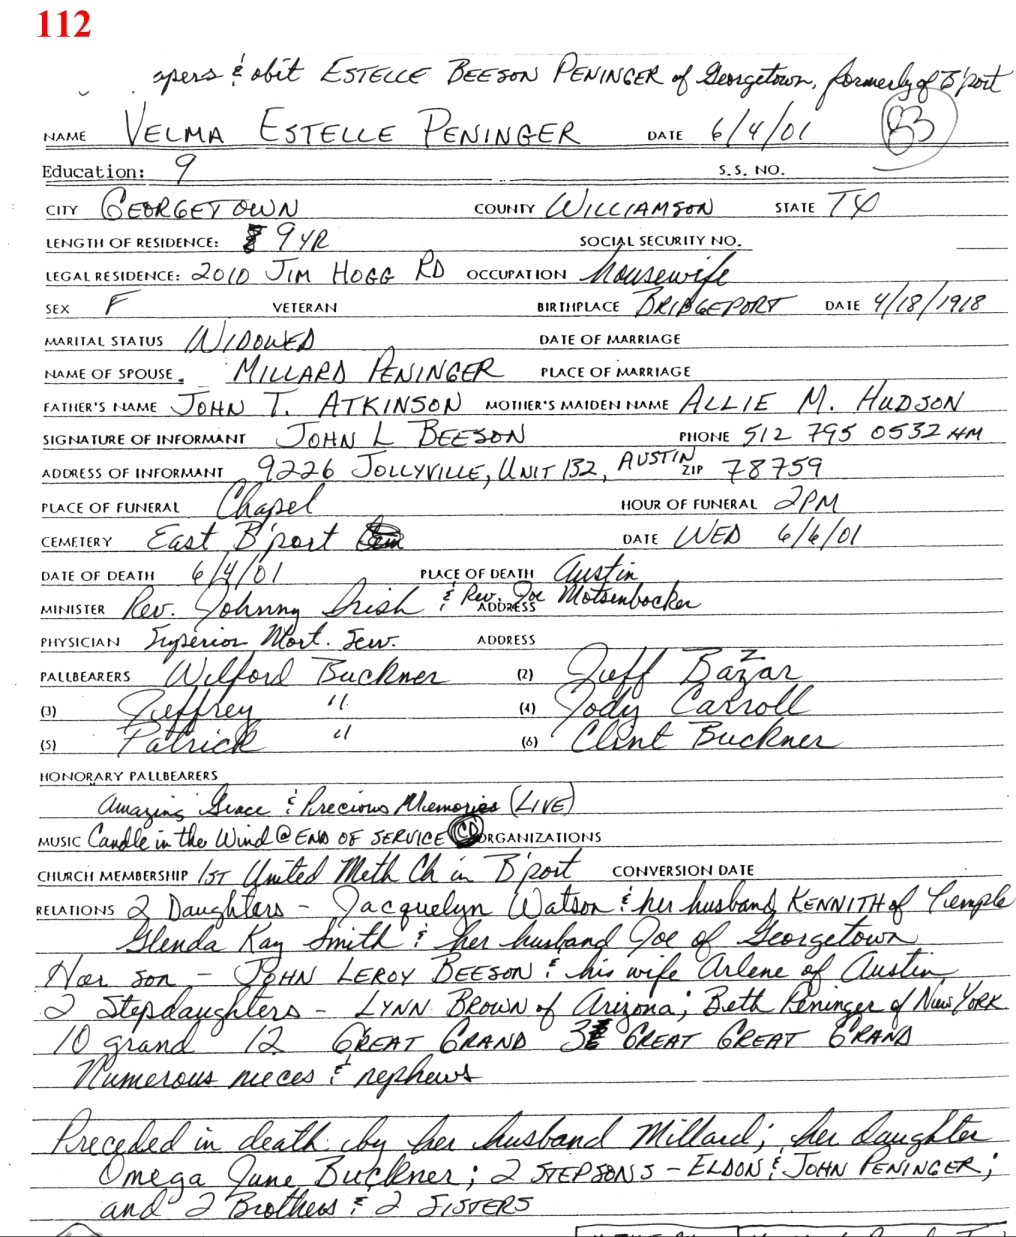 112
apers & obit ESTELLE BEESON PENINGER of Georgetown, formerly of B'port
NAME VELMA ESTELLE PENINGER DATE 6/4/01 83
Education: 9 S.S. NO.
CITY GEORGETOWN COUNTY WILLIAMSON STATE TX
LENGTH OF RESIDENCE: 9 YR SOCIAL SECURITY NO.
LEGAL RESIDENCE: 2010 JIM HOGG RD OCCUPATION housewife
SEX F VETERAN BIRTHPLACE BRIDGEPORT DATE 4/18/1918
MARITAL STATUS WIDOWED DATE OF MARRIAGE
NAME OF SPOUSE MILLARD PENINGER PLACE OF MARRIAGE
FATHER'S NAME JOHN T. ATKINSON MOTHER'S MAIDEN NAME ALLIE M. HUDSON
SIGNATURE OF INFORMANT JOHN L BEESON PHONE 512 795 0532 HM
ADDRESS OF INFORMANT 9226 JOLLYVILLE, UNIT 132, AUSTIN ZIP 78759
PLACE OF FUNERAL Chapel HOUR OF FUNERAL 2PM
CEMETERY East B'port DATE WED 6/6/01
DATE OF DEATH 6/4/01 PLACE OF DEATH Austin
MINISTER Rev. Johnny Irish & Rev. Joe Motsenbocker ADDRESS
PHYSICIAN Superior Mort. Serv. ADDRESS
PALLBEARERS Wilford Buckner (2) Jeff Bazar
(3) Jeffrey " (4) Jody Carroll
(5) Patrick " (6) Clint Buckner
HONORARY PALLBEARERS
Amazing Grace & Precious Memories (LIVE)
MUSIC Candle in the Wind @ END OF SERVICE CD ORGANIZATIONS
CHURCH MEMBERSHIP 1ST United Meth Ch in B'port CONVERSION DATE
RELATIONS 2 Daughters - Jacquelyn Watson & her husband KENNITH of Temple
Glenda Kay Smith & her husband Joe of Georgetown
Her son - JOHN LEROY BEESON & his wife Arlene of Austin
2 Stepdaughters - LYNN BROWN of Arizona; Beth Peninger of New York
10 grand 12 GREAT GRAND 3 GREAT GREAT GRAND
Numerous nieces & nephews
Preceded in death by her husband Millard; her daughter
Omega June Buckner; 2 STEPSONS - ELDON & JOHN PENINGER;
and 2 Brothers & 2 SISTERS